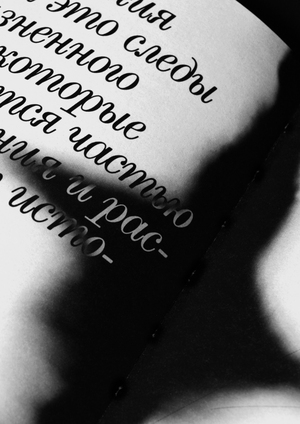 ия
это следы
зненного
которые
тся частью
ния и рас-
исто-